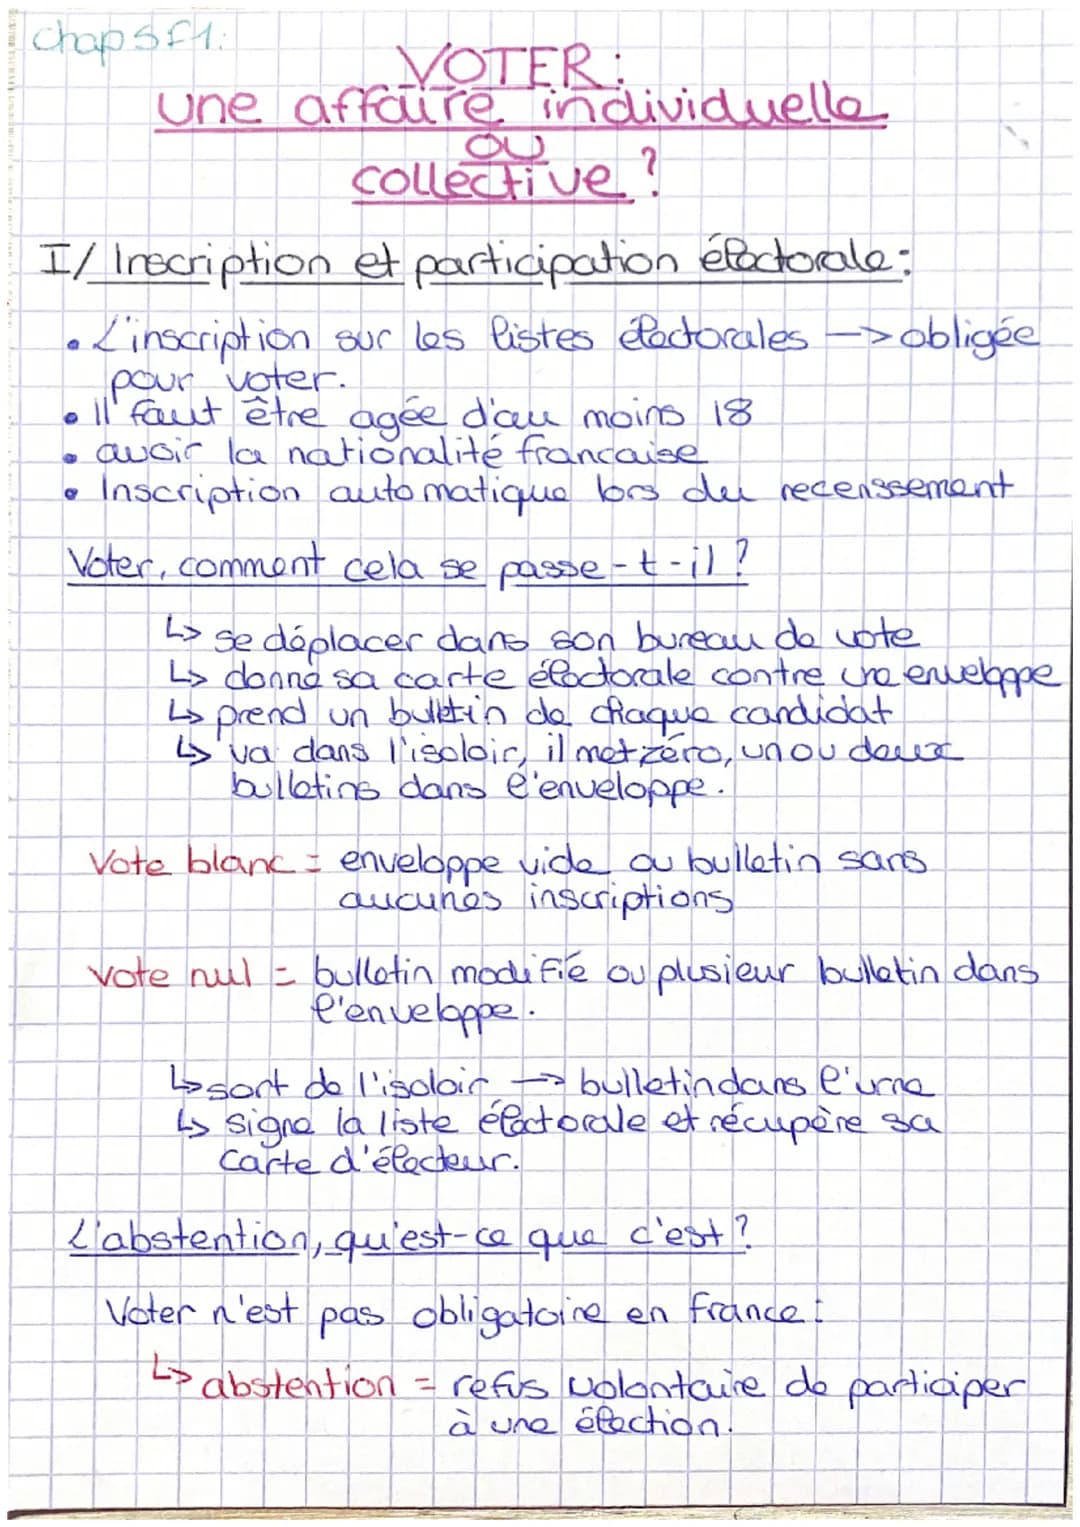 chap 5 f1:
VOTER:
une affaire individuelle
ou
collective?
I/ Inscription et participation électorale:
• L'inscription sur les listes électorales —> obligée
pour voter.
• Il faut être agée d'au moins 18
• avoir la nationalité francaise
• Inscription automatique lors du recenssement
Voter, comment cela se passe-t-il?
↳ se déplacer dans son bureau de vote
↳ donne sa carte électorale contre une enveloppe
↳ prend un bulletin de chaque candidat
↳ va dans l'isoloir, il met zéro, un ou deux
bulletins dans l'enveloppe.
Vote blanc = enveloppe vide ou bulletin sans
aucunes inscriptions
vote nul = bulletin modifié ou plusieur bulletin dans
l'enveloppe.
↳ sort de l'isoloir —> bulletin dans l'urne
↳ signe la liste électorale et récupère sa
carte d'électeur.
L'abstention, qu'est-ce que c'est?
Voter n'est pas obligatoire en france:
↳ abstention = refus volontaire de participer
à une élection.